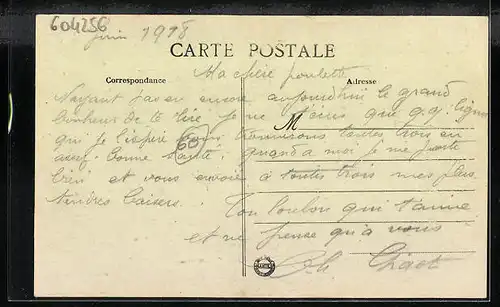 604256
juin 1918
CARTE POSTALE
Correspondance
Adresse
Ma chère poulette
N'ayant pas eu encore aujourd'hui le grand
bonheur de te lire je ne t'écris que q.q. lignes
qui je l'espère vous trouverons toutes trois en
assez bonne santé. quand a moi je me porte
bien et vous envoie à toutes trois mes plus
tendres baisers. Ton loulou qui t'aime
et ne pense qu'a vous
60
M
Ch